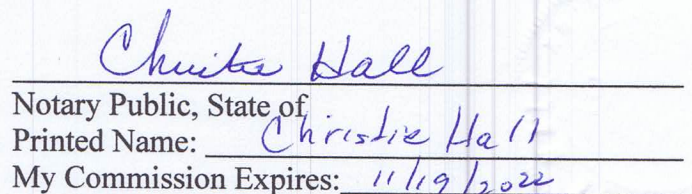 Christie Hall
Notary Public, State of
Printed Name: Christie Hall
My Commission Expires: 11/19/2022